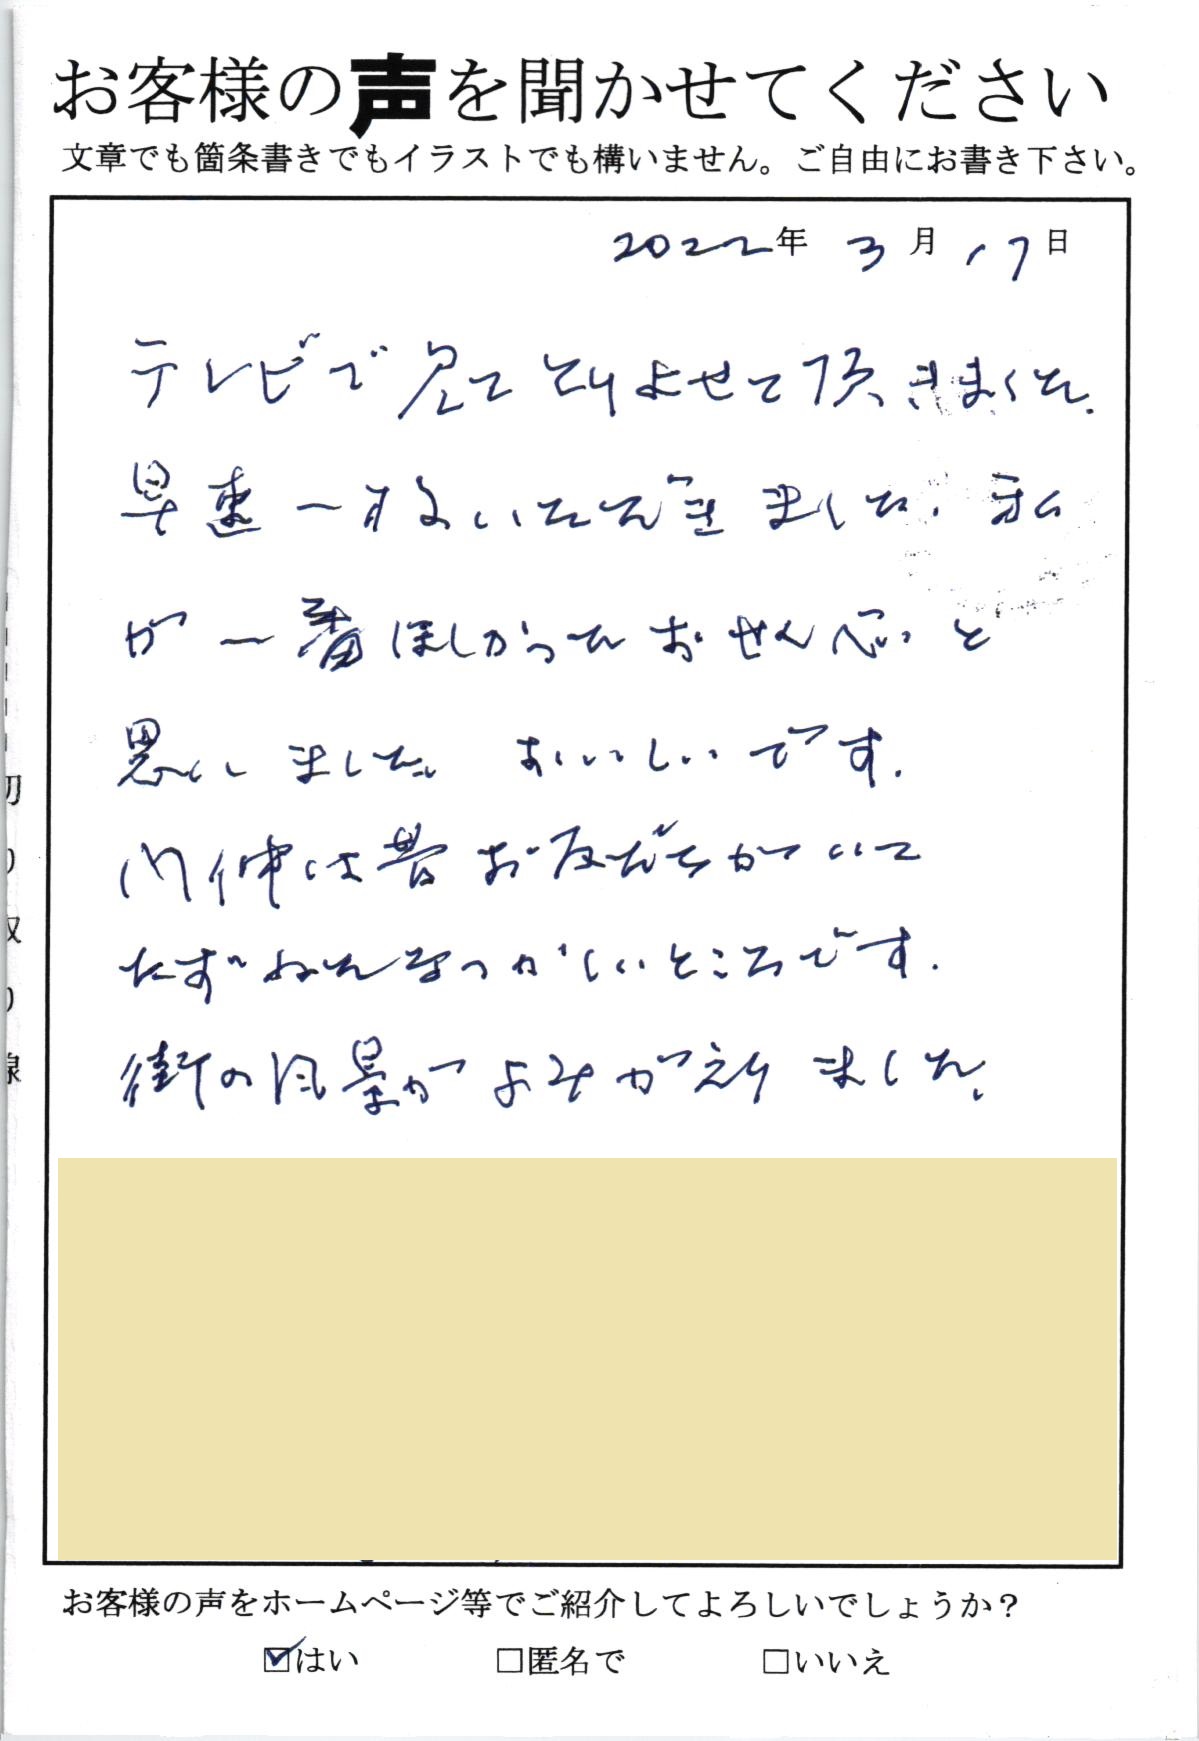 お客様の声を聞かせてください
文章でも箇条書きでもイラストでも構いません。ご自由にお書き下さい。
2022年 3月 17日
テレビで見てとりよせて頂きました。
早速一枚いただきました。私
が一番ほしかったおせんべいと
思いました。おいしいです。
門仲は昔お友だちがいて
たずねたなつかしいところです。
街の風景がよみがえりました。
切り取り線
お客様の声をホームページ等でご紹介してよろしいでしょうか？
☑はい □匿名で □いいえ